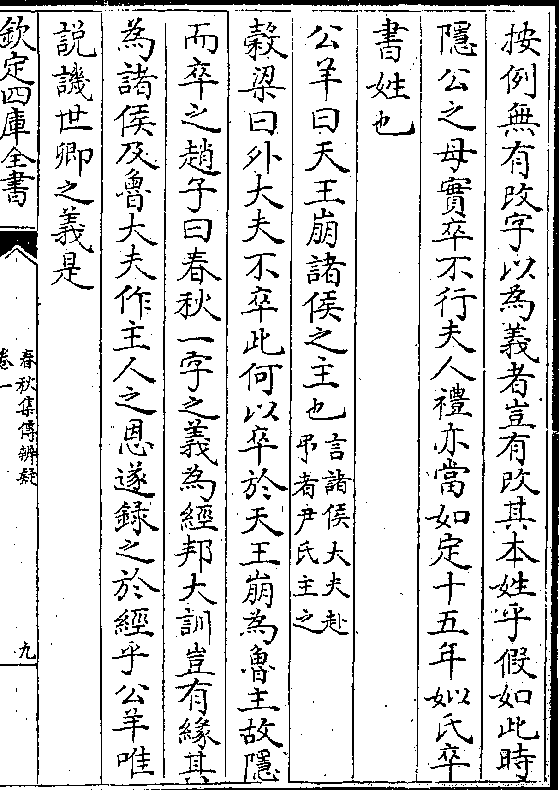 按例無有改字以為義者豈有改其本姓乎假如此時
隱公之母實卒不行夫人禮亦當如定十五年姒氏卒
書姓也
公羊曰天王崩諸侯之主也言諸侯大夫赴
弔者尹氏主之
榖梁曰外大夫不卒此何以卒於天王崩為魯主故隱
而卒之趙子曰春秋一字之義為經邦大訓豈有緣其
為諸侯及魯大夫作主人之恩遂録之於經乎公羊唯
説譏世卿之義是
欽定四庫全書
春秋集傳辨疑
卷一
九